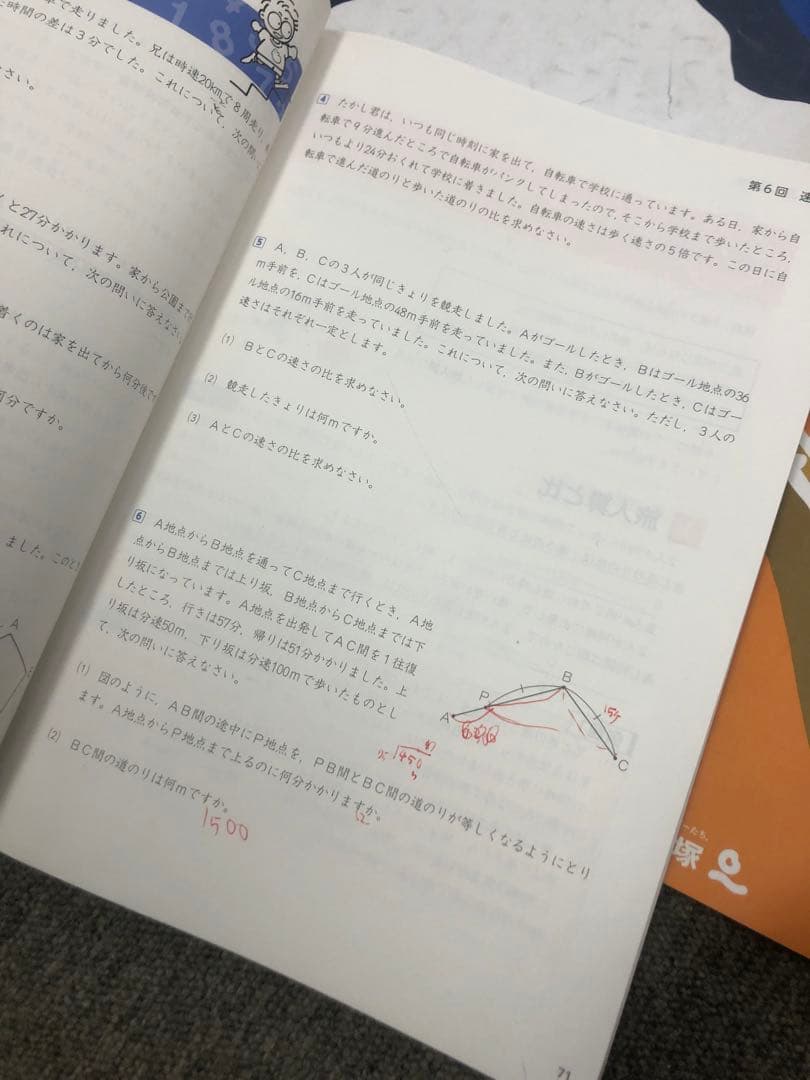 車で走りました。兄は時速20kmで8周走り、
時間の差は3分でした。これについて、次の問い
なさい。
と27分かかります。家から公園まで
れについて、次の問いに答えなさい
着くのは家を出てから何分後で
何分ですか。
ました。このと
A
第6回 速
4 たかし君は、いつも同じ時刻に家を出て、自転車で学校に通っています。ある日、家から自
転車で9分進んだところで自転車がパンクしてしまったので、そこから学校まで歩いたところ、
いつもより24分おくれて学校に着きました。自転車の速さは歩く速さの5倍です。この日に自
転車で進んだ道のりと歩いた道のりの比を求めなさい。
5 A、B、Cの3人が同じきょりを競走しました。Aがゴールしたとき、Bはゴール地点の36
m手前を、Cはゴール地点の48m手前を走っていました。また、Bがゴールしたとき、Cはゴー
ル地点の16m手前を走っていました。これについて、次の問いに答えなさい。ただし、3人の
速さはそれぞれ一定とします。
(1) BとCの速さの比を求めなさい。
(2) 競走したきょりは何mですか。
(3) AとCの速さの比を求めなさい。
旅人算と比
6 A地点からB地点を通ってC地点まで行くとき、A地
点からB地点までは上り坂、B地点からC地点までは下
り坂になっています。A地点を出発してAC間を1往復
したところ、行きは57分、帰りは51分かかりました。上
り坂は分速50m、下り坂は分速100mで歩いたものとし
て、次の問いに答えなさい。
(1) 図のように、AB間の途中にP地点を、PB間とBC間の道のりが等しくなるようにとり
ます。A地点からP地点まで上るのに何分かかりますか。
12
(2) BC間の道のりは何mですか。
1500
A
P
B
C
15分
450
71
塚